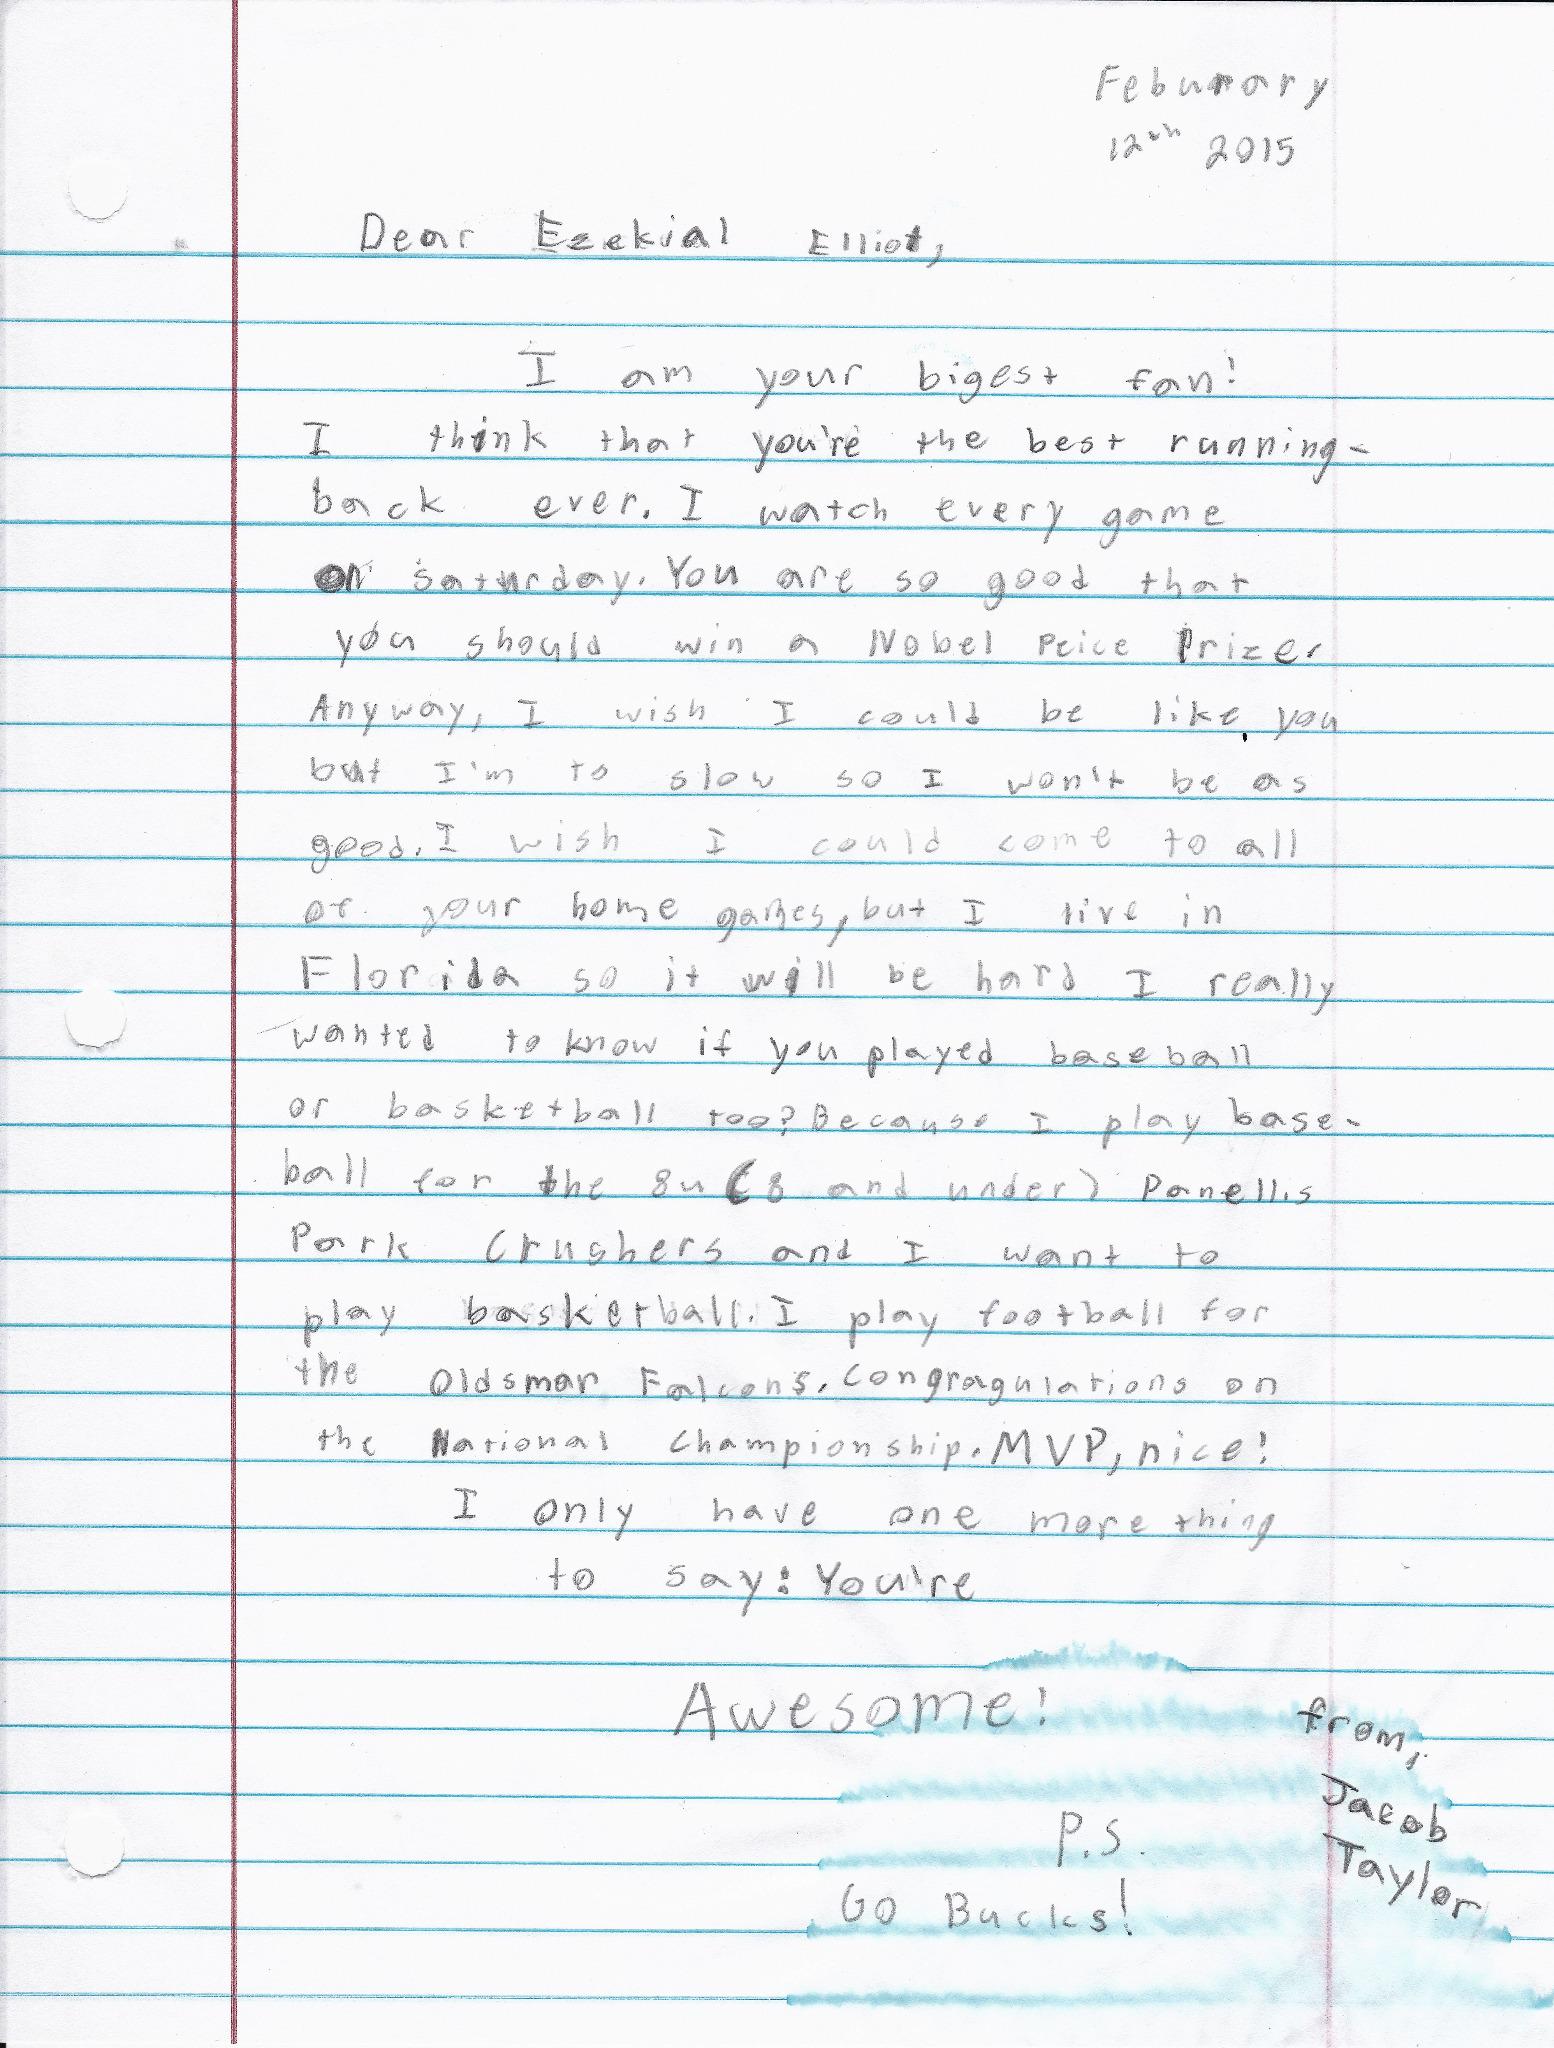 Feburary
12th 2015
Dear Ezekial Elliot,
I am your bigest fan!
I think that you're the best running-
back ever. I watch every game
on saturday. You are so good that
you should win a Nobel Peice Prize.
Anyway, I wish I could be like you
but I'm to slow so I won't be as
good. I wish I could come to all
of your home games, but I live in
Florida so it will be hard I really
wanted to know if you played baseball
or basketball too? Because I play base-
ball for the 8u (8 and under) Panellis
Park Crushers and I want to
play basketball. I play football for
the Oldsmar Falcons. Congragulations on
the National Championship. MVP, nice!
I only have one more thing
to say: You're
Awesome!
from,
Jacob
Taylor
P.S.
Go Bucks!